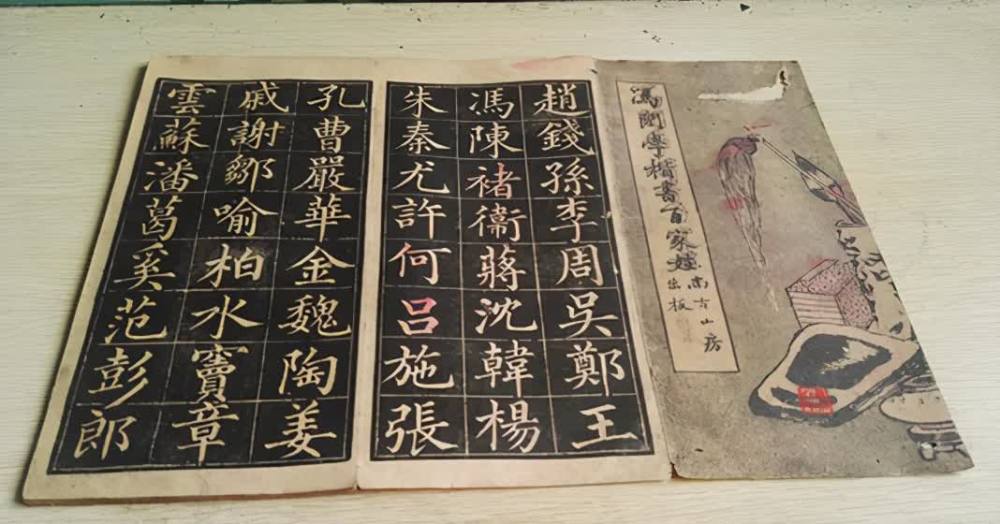 馮開學楷書百家姓
尚古山房
出版
趙錢孫李周吳鄭王
馮陳褚衛蔣沈韓楊
朱秦尤許何呂施張
孔曹嚴華金魏陶姜
戚謝鄒喻柏水竇章
雲蘇潘葛奚范彭郎